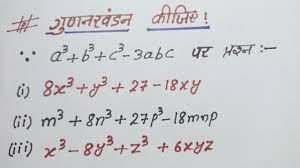 # गुणनखंडन कीजिए!
∵ a³+b³+c³-3abc पर प्रश्न :-
(i) 8x³+y³+27-18xy
(ii) m³+8n³+27p³-18mnp
(iii) x³-8y³+z³+6xyz